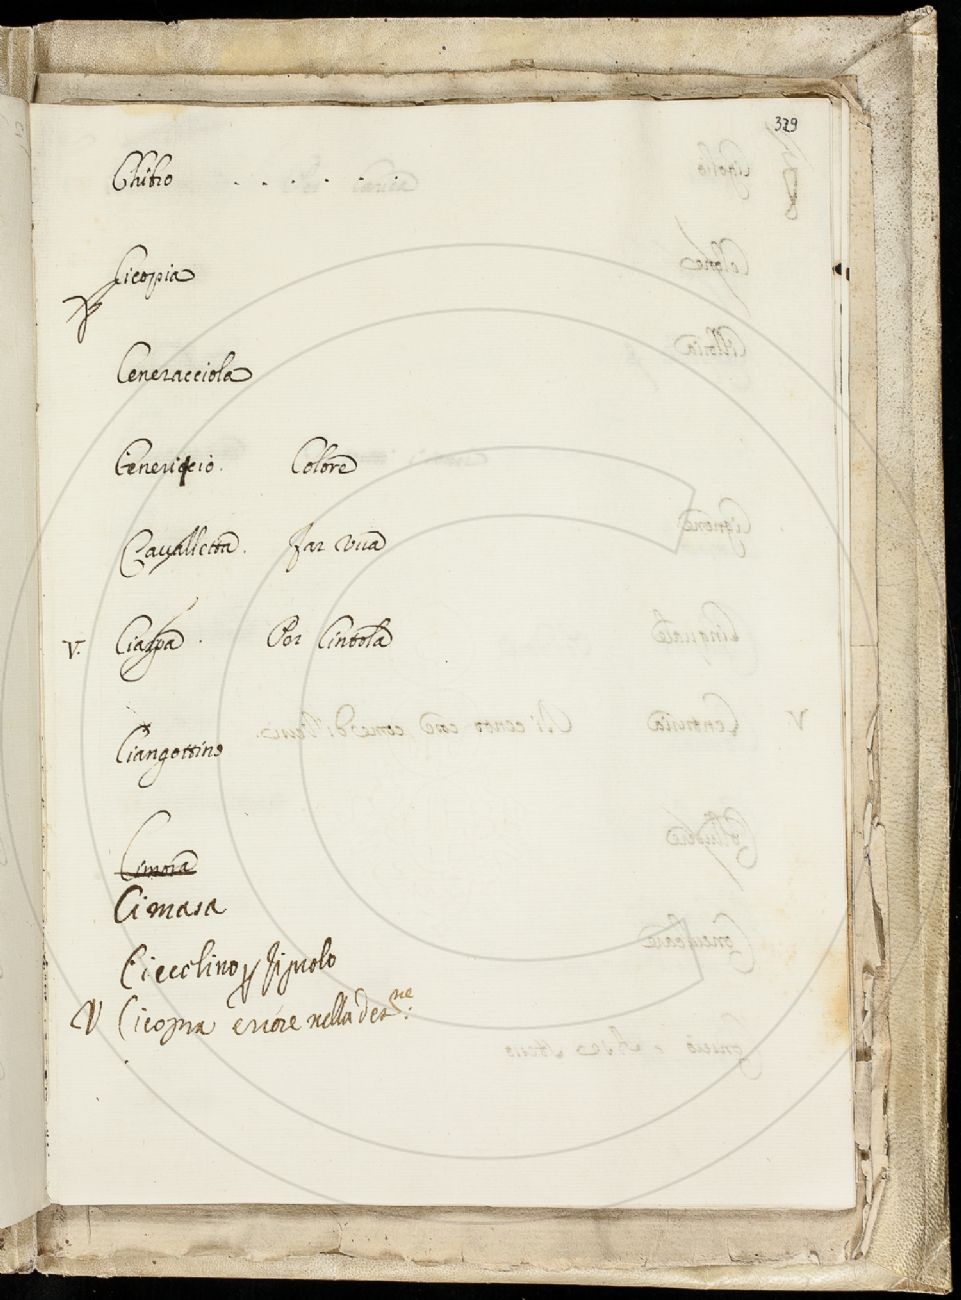 379
Chibo . . . . . .
Cicopia
Ceneracciola
Cenericcio. Colore
Cavalletta. Far viva
V. Ciarpa. Per Cintola
Ciangottino
Cimosa
Cimasa
Ciecolino Fignolo
V Cicopra errore nella des.ne: